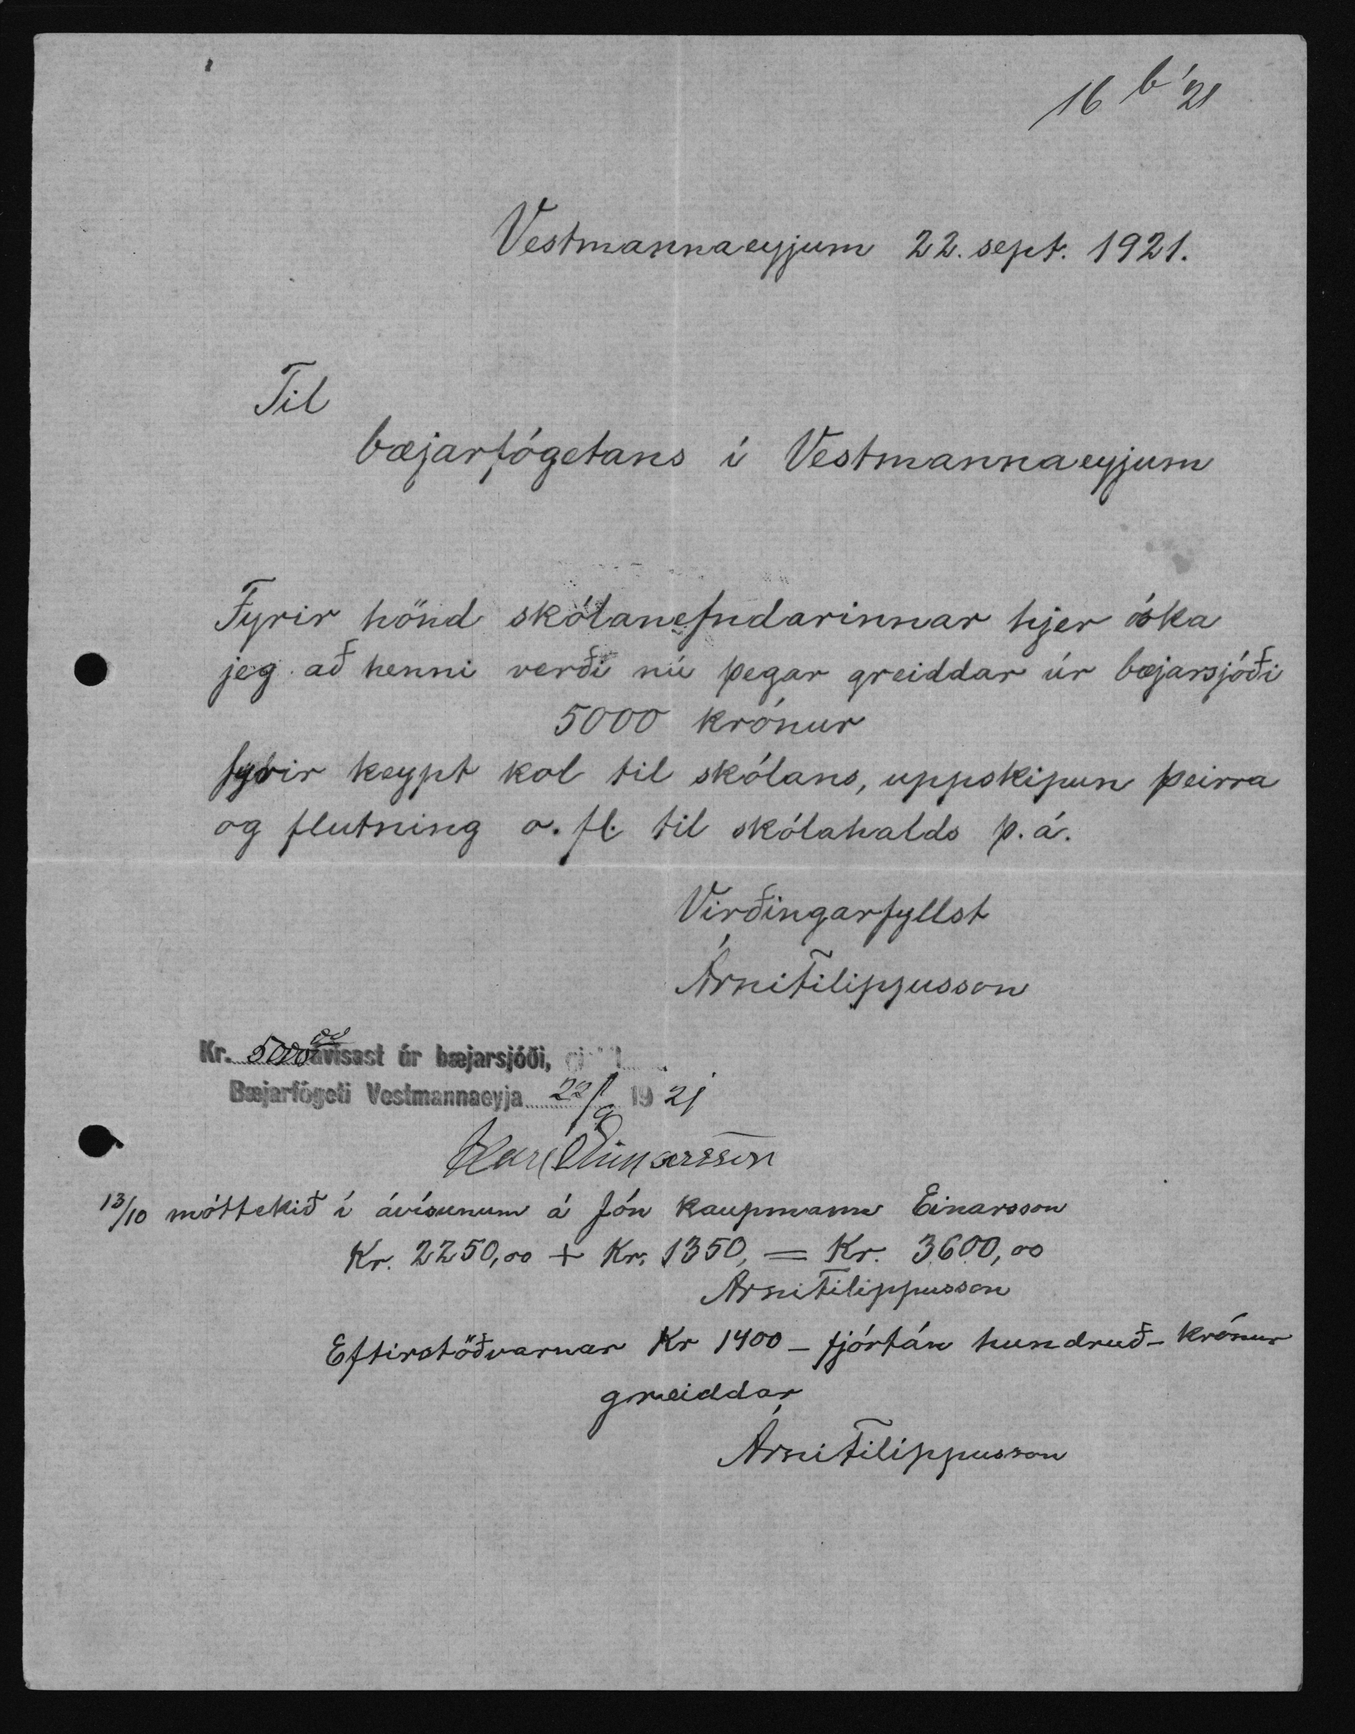 16 b '21
Vestmannaeyjum 22. sept. 1921.
Til
bæjarfógetans í Vestmannaeyjum
Fyrir hönd skólanefndarinnar hjer óska
jeg að henni verði nú þegar greiddar úr bæjarsjóði
5000 krónur
fyrir keypt kol til skólans, uppskipun þeirra
og flutning o. fl. til skólahalds þ. á.
Virðingarfyllst
Árni Filippusson
Kr. 5000 00 ávísast úr bæjarsjóði,
Bæjarfógeti Vestmannaeyja 22/9 1921
Karl Einarsson
13/10 móttekið í ávísunum á Jón kaupmann Einarsson
Kr. 2250,00 + Kr. 1350, = Kr. 3600,00
Árni Filippusson
Eftirstöðvarnar Kr 1400 - fjórtán hundruð - krónur
greiddar
Árni Filippusson